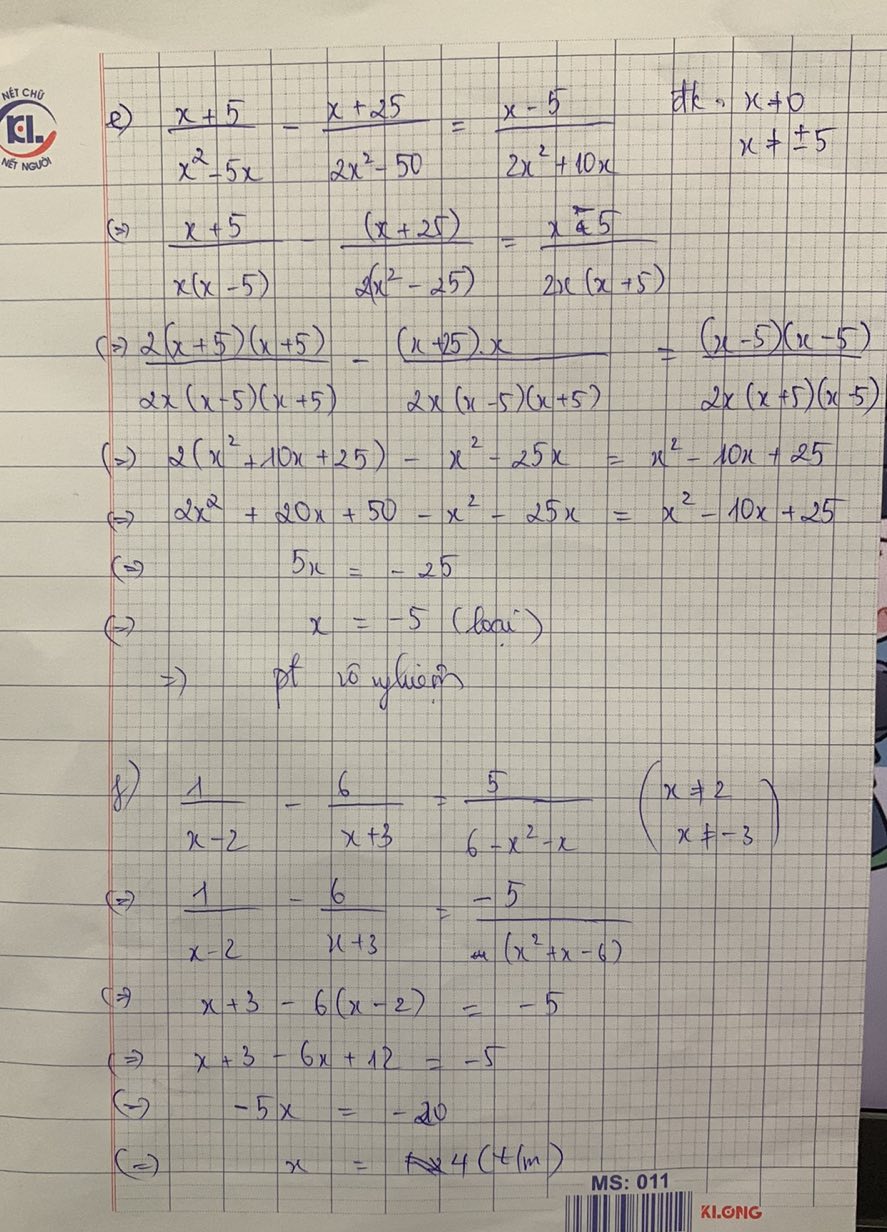 NÉT CHỮ
KL
NẾT NGƯỜI
e) (x + 5)/(x² - 5x) - (x + 25)/(2x² - 50) = (x - 5)/(2x² + 10x) đk: x ≠ 0
x ≠ ± 5
(=) (x + 5)/(x(x - 5)) - (x + 25)/(2(x² - 25)) = (x - 5)/(2x(x + 5))
(=) 2(x + 5)(x + 5)/(2x(x - 5)(x + 5)) - (x + 25).x/(2x(x - 5)(x + 5)) = (x - 5)(x - 5)/(2x(x + 5)(x - 5))
(=) 2(x² + 10x + 25) - x² - 25x = x² - 10x + 25
(=) 2x² + 20x + 50 - x² - 25x = x² - 10x + 25
(=) 5x = - 25
(=) x = -5 (loại)
=) pt vô nghiệm
f) 1/(x - 2) - 6/(x + 3) = 5/(6 - x² - x) (x ≠ 2
x ≠ -3)
(=) 1/(x - 2) - 6/(x + 3) = -5/(x² + x - 6)
(=) x + 3 - 6(x - 2) = -5
(=) x + 3 - 6x + 12 = -5
(=) -5x = -20
(=) x = 4 (t/m)
MS: 011
KLONG